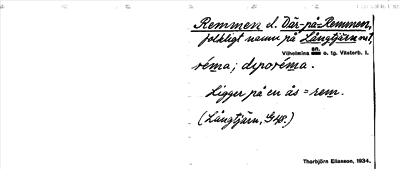 Remmen d. Där-på-Remmen,
folkligt namn på Långtjärn nr 1,
Vilhelmina sn. o. tg. Västerb. l.
réma; dęporéma.
Ligger på en ås = rem.
(Långtjärn, Gsp.)
Thorbjörn Eliasson, 1934.